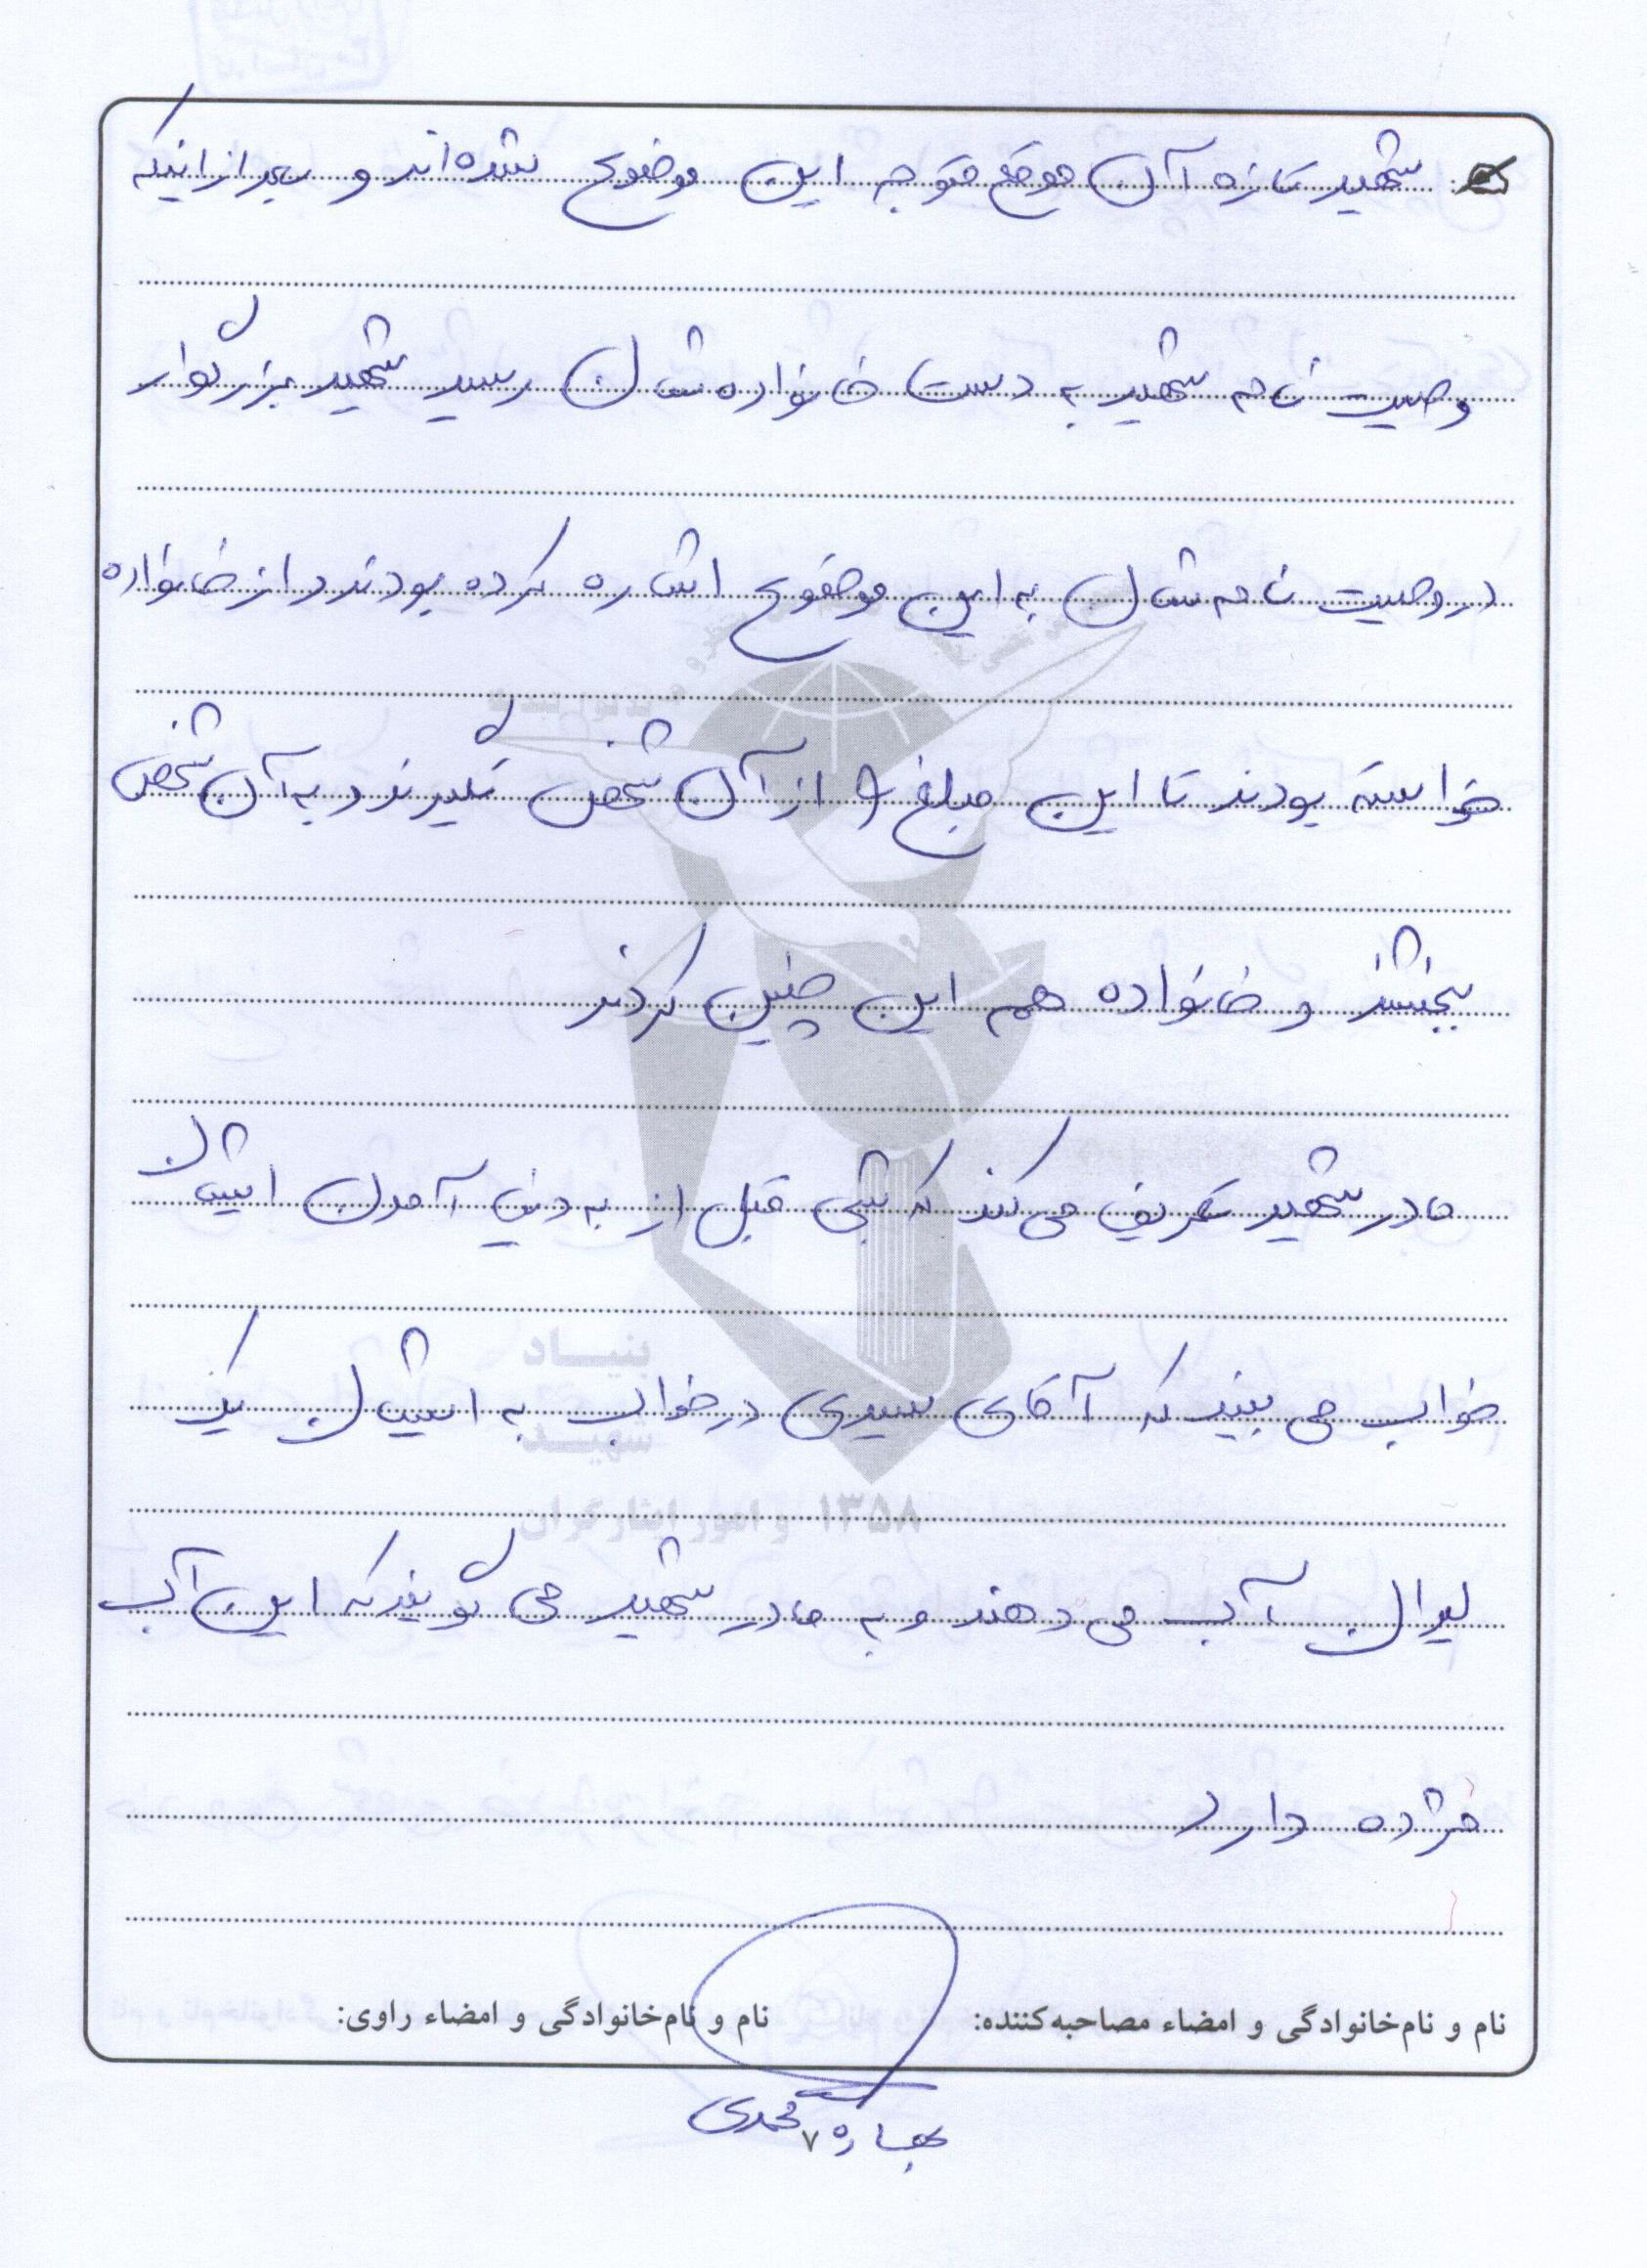 شهید تازه آن موقع متوجه این موضوع شده‌اند و بعد از اینکه
وصیت نامه شهید به دست خانواده شان رسید شهید بزرگوار
در وصیت نامه شان به این موضوع اشاره کرده بودند و از خانواده
خواسته بودند تا این مبلغ را از آن شخص نگیرند و به آن شخص
ببخشند و خانواده هم این چنین کردند
مادر شهید تعریف می کند که شبی قبل از به دنیا آمدن ایشان
خواب می بیند که آقای سیدی در خواب به ایشان یک
لیوان آب می دهند و به مادر شهید می گویند که این آب
مژده دارد
بنیاد
شهید
و امور ایثارگران ۱۳۵۸
نام و نام‌خانوادگی و امضاء مصاحبه‌کننده: نام و نام‌خانوادگی و امضاء راوی:
بهاره محمدی
۷